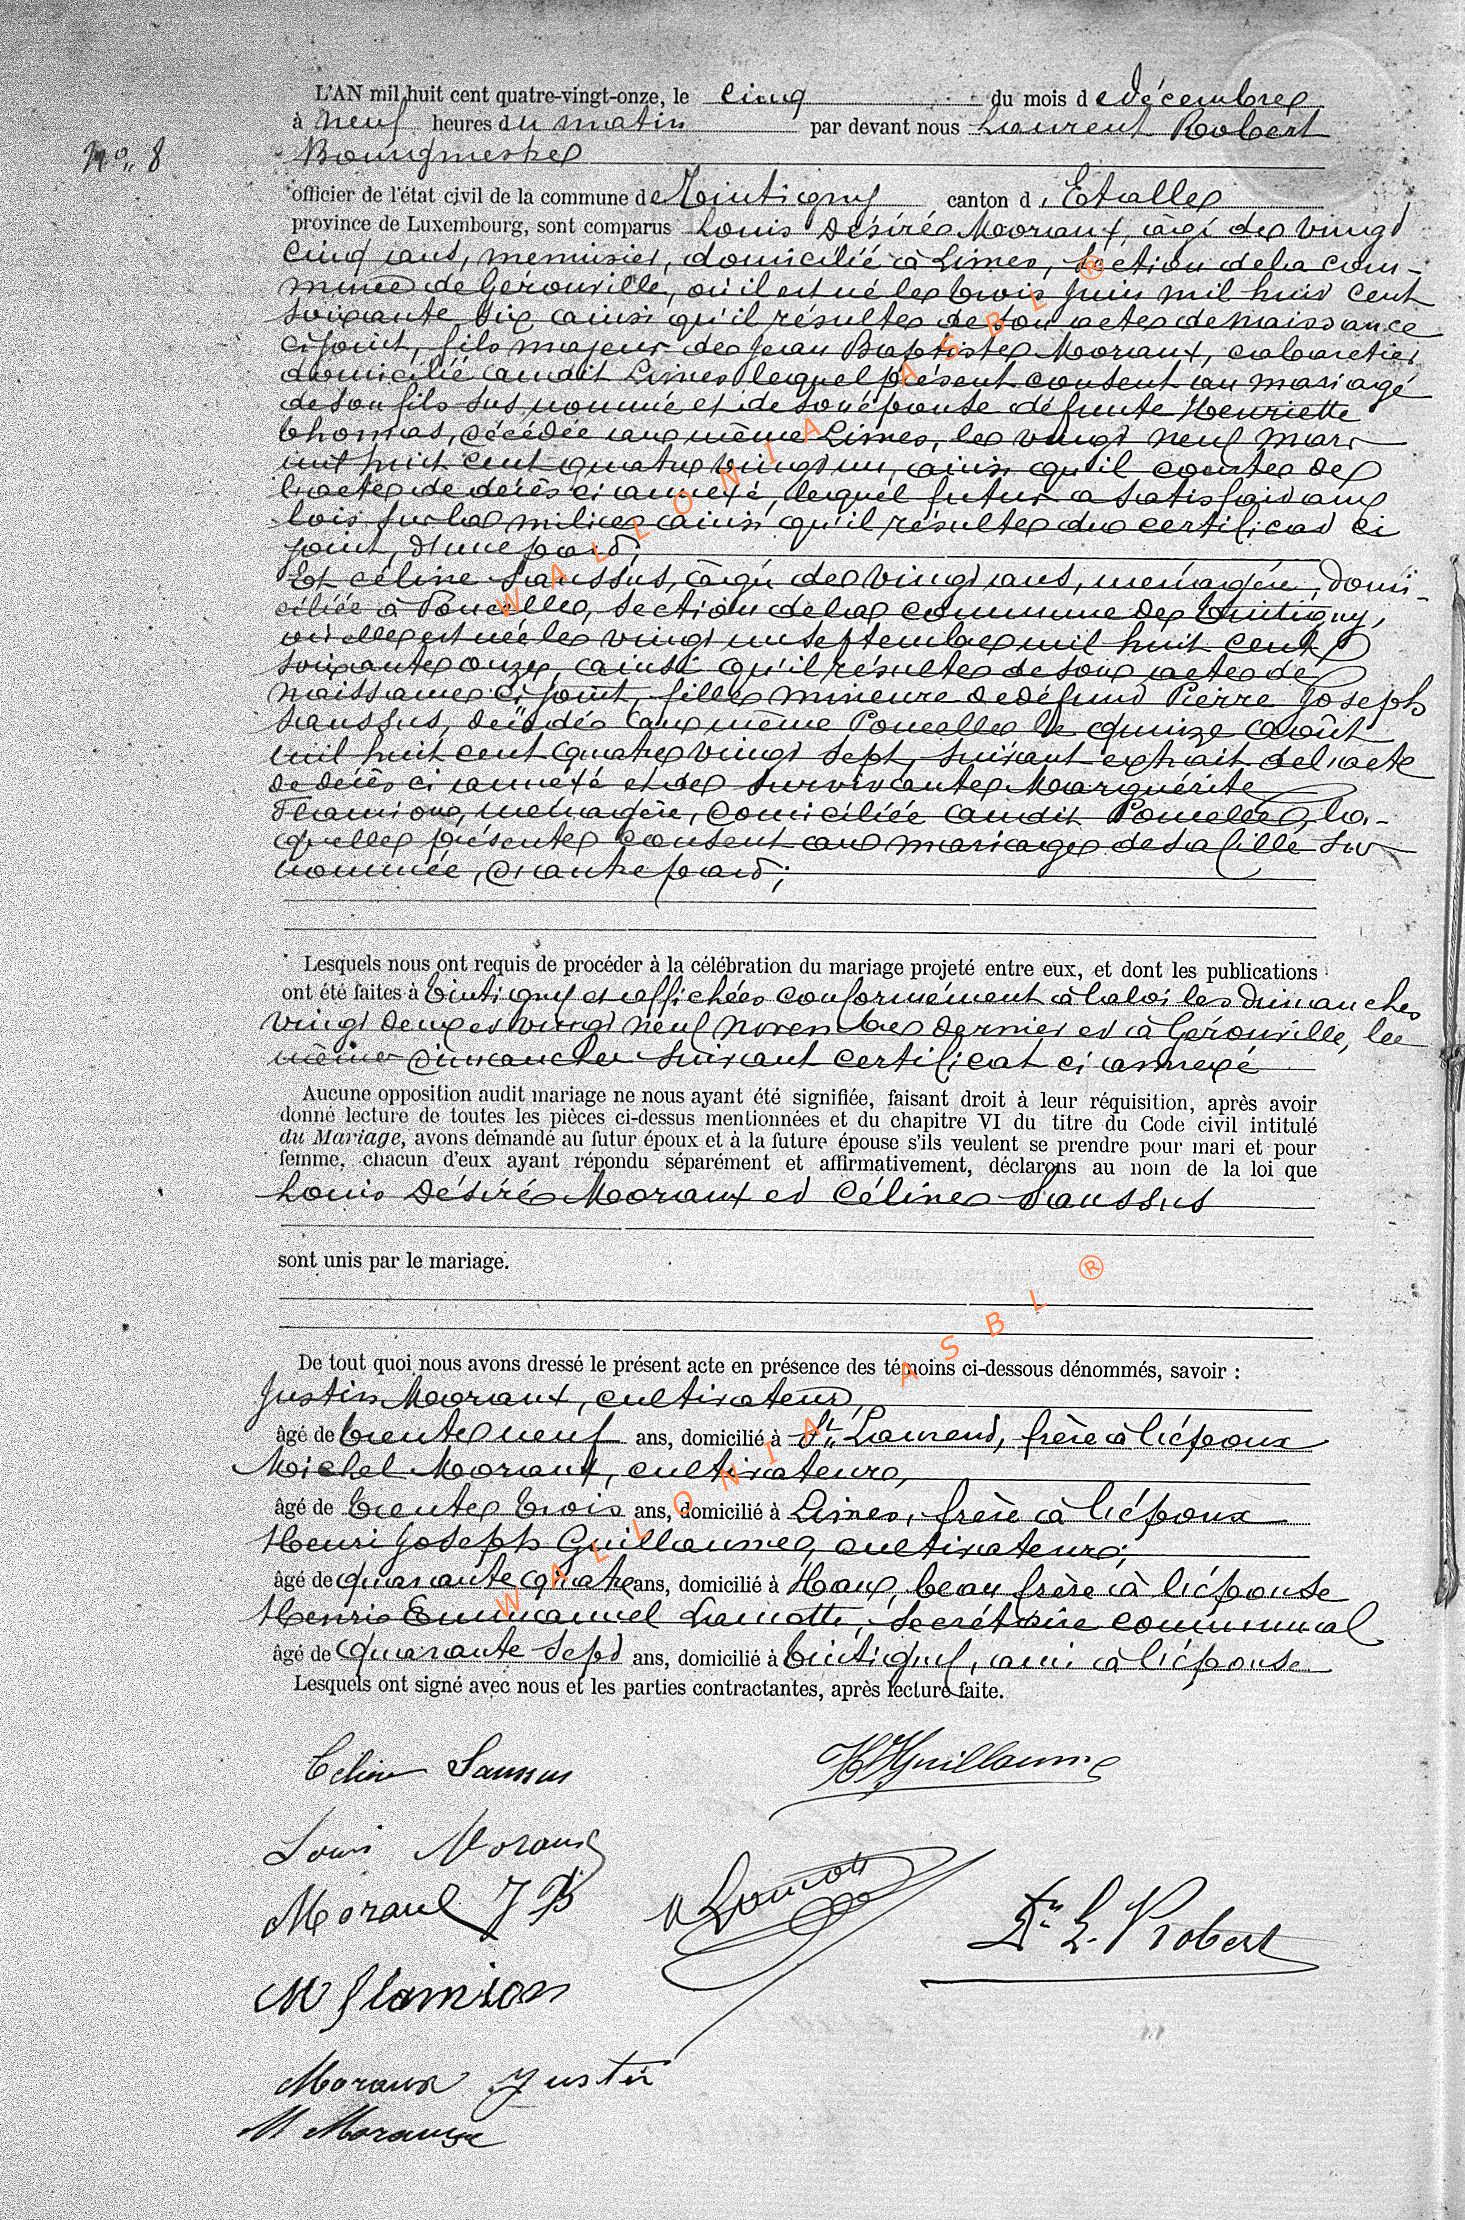 L'AN mil huit cent quatre-vingt-onze, le cinq du mois de décembre
à neuf heures du matin par devant nous Laurent Robert
N° 8
Bourgmestre
officier de l'état civil de la commune de Tintigny canton d'Etalle
province de Luxembourg, sont comparus Louis Désiré Moraux, âgé de vingt
cinq ans, menuisier, domicilié à Limes, section de la com-
mune de Gérouville, où il est né le trois juin mil huit cent
soixante six ainsi qu'il résulte de son acte de naissance
ci joint, fils majeur de Jean Baptiste Moraux, cabaretier
domicilié audit Limes lequel présent consent au mariage
de son fils sus nommé et de son épouse défunte Henriette
Thomas, décédée au même Limes, le vingt neuf mars
mil huit cent quatre vingt un, ainsi qu'il conste de
l'acte de décès ci annexé, lequel futur a satisfait aux
lois sur la milice ainsi qu'il résulte du certificat ci
joint, d'une part;
Et Céline Saussus, âgée de vingt ans, ménagère, domi-
ciliée à Poncelle, section de la commune de Tintigny,
où elle est née le vingt un septembre mil huit cent
soixante onze, ainsi qu'il résulte de son acte de
naissance ci joint, fille mineure de défunt Pierre Joseph
Saussus, décédé au même Poncelle le quinze août
mil huit cent quatre vingt sept, suivant extrait de l'acte
de décès ci annexé et de survivante Marguérite
Flamion, ménagère, domiciliée audit Poncelle, la-
quelle présente consent au mariage de sa fille sus
nommée, d'autre part;
Lesquels nous ont requis de procéder à la célébration du mariage projeté entre eux, et dont les publications
ont été faites à Tintigny et affichées conformément à la loi les dimanches
vingt deux et vingt neuf novembre dernier et à Gérouville, les
mêmes dimanches suivant certificat ci annexé
Aucune opposition audit mariage ne nous ayant été signifiée, faisant droit à leur réquisition, après avoir
donné lecture de toutes les pièces ci-dessus mentionnées et du chapitre VI du titre du Code civil intitulé
du Mariage, avons demandé au futur époux et à la future épouse s'ils veulent se prendre pour mari et pour
femme, chacun d'eux ayant répondu séparément et affirmativement, déclarons au nom de la loi que
Louis Désiré Moraux et Céline Saussus
sont unis par le mariage.
De tout quoi nous avons dressé le présent acte en présence des témoins ci-dessous dénommés, savoir :
Justin Moraux, cultivateur,
âgé de trente neuf ans, domicilié à St Laurent, frère à l'époux
Michel Moraux, cultivateur,
âgé de trente trois ans, domicilié à Limes, frère à l'époux
Henri Joseph Guillaume, cultivateur;
âgé de quarante quatre ans, domicilié à Han, beau frère à l'épouse
Henri Emmanuel Lamotte, secrétaire communal
âgé de quarante sept ans, domicilié à Tintigny, ami à l'épouse
Lesquels ont signé avec nous et les parties contractantes, après lecture faite.
Céline Saussus
HJGuillaume
Louis Moraux
Moraux J B
Lamotte
Dr L. Robert
M Flamion
Moraux Justin
M Moraux
WALLONIA ASBL ®
WALLONIA ASBL ®